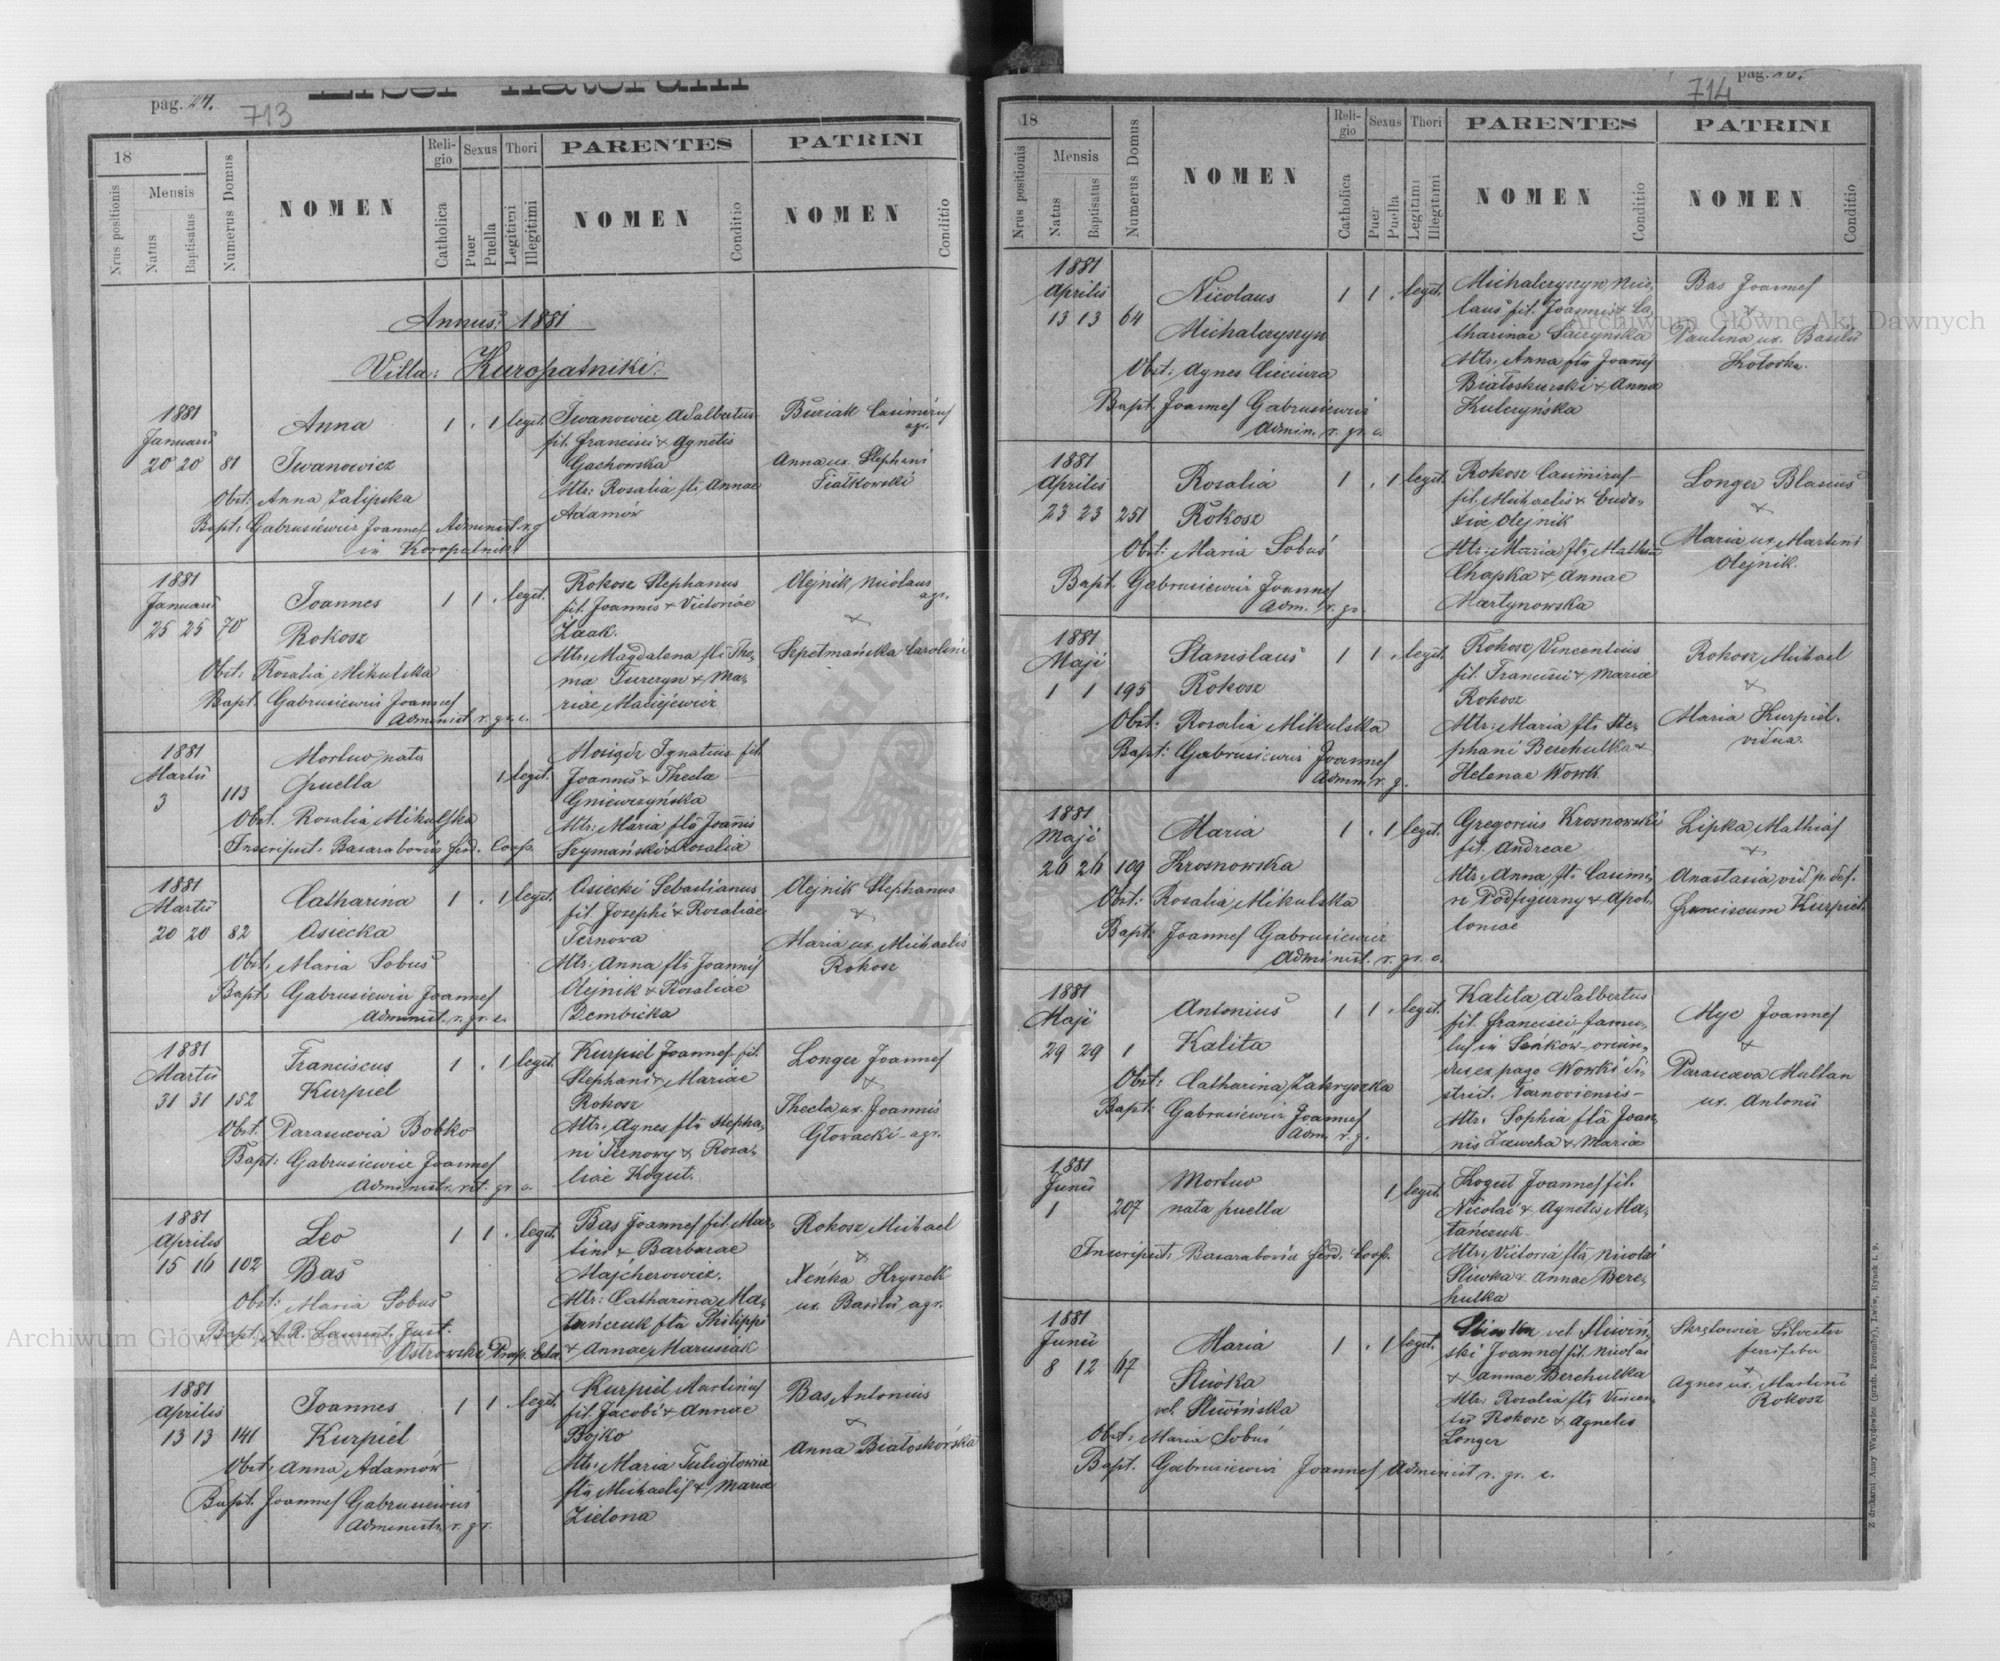 Liber natorum
pag. 27.
713
18
Nrus positionis
Mensis
Natus
Baptisatus
Numerus Domus
NOMEN
Religio
Catholica
Sexus
Puer
Puella
Thori
Legitimi
Illegitimi
PARENTES
NOMEN
Conditio
PATRINI
NOMEN
Conditio
Annus: 1881
Villa: Kuropatniki:
1881
Januarii
20 20 81
Anna
Iwanowicz
1 . 1 legit.
Obst: Anna Zalipska
Bapt. Gabrusiewicz Joannes Administ r. g
in Koropatnik
Iwanowicz Adalbertus
fil. Francisci & Agnetis
Gachowska
Mtr: Rosalia fta Annae
Adamów
Buziak Casimirus
agr.
Anna ux. Stephani
Fiałkowski
1881
Januarii
25 25 70
Joannes
Rokosz
1 1 . legit.
Obst. Rosalia Mikulska
Bapt. Gabrusiewicz Joannes
Administ. r. gr. c.
Rokosz Stephanus
fil. Joannis & Victoriae
Żaak.
Mtr: Magdalena fta Tho-
ma Turczyn & Ma-
riae Maciejewicz
Olejnik Nicolaus
agr.
&
Szpetmańska Carolina
1881
Martii
3 113
Mortuo nata
puella
1 legit.
Obst. Rosalia Mikulska
Inscripsit. Basarabowicz Coop.
Mosiądz Ignatius fil.
Joannis & Thecla
Gniewczyńska
Mtr: Maria fta Joannis
Szymański & Rosalia
1881
Martii
20 20 82
Catharina
Osiecka
1 . 1 legit.
Obst. Maria Sobuś
Bapt. Gabrusiewicz Joannes
Administ. r. gr. c.
Osiecki Sebastianus
fil. Josephi & Rosaliae
Ternowa
Mtr: Anna fta Joannis
Olejnik & Rosaliae
Dembicka
Olejnik Stephanus
&
Maria ux. Michaelis
Rokosz
1881
Martii
31 31 152
Franciscus
Kurpiel
1 . 1 legit.
Obst. Parascevia Bobko
Bapt: Gabrusiewicz Joannes
Administr. rit. gr. c.
Kurpiel Joannes fil.
Stephani & Mariae
Rokosz
Mtr: Agnes fta Stepha-
ni Ternowy & Rosa-
liae Kogut.
Longer Joannes
&
Thecla ux. Joannis
Głowacki - agr.
1881
Aprilis
15 16 102
Leo
Bas
1 1 . legit.
Obst: Maria Sobuś
Bapt. A.R. Laurent. Just.
Ostrowski
Bas Joannes fil. Mar-
tini & Barbarae
Majcherowicz.
Mtr: Catharina Ma-
tańczuk fta Philippi
& Annae Marusiak
Rokosz Michael
&
Xenka Hryszak
ux. Basilii agr.
1881
Aprilis
13 13 141
Joannes
Kurpiel
1 1 . legit.
Obst. Anna Adamów
Bapt. Joannes Gabrusiewicz
Administr. r. gr.
Kurpiel Martinus
fil. Jacobi & Annae
Bojko
Mtr: Maria Tuligłowicz
fta Michaelis & Maria
Zielona
Bas Antonius
&
Anna Białoskórska
714
pag. 28.
18
Nrus positionis
Mensis
Natus
Baptisatus
Numerus Domus
NOMEN
Religio
Catholica
Sexus
Puer
Puella
Thori
Legitimi
Illegitimi
PARENTES
NOMEN
Conditio
PATRINI
NOMEN
Conditio
1881
Aprilis
13 13 64
Nicolaus
Michalczyszyn
1 1 . legit.
Obst: Agnes Cieciura
Bapt. Joannes Gabrusiewicz
Admin. r. gr. c.
Michalczyszyn Nico-
laus fil. Joannis & Ca-
tharinae Saczyńska
Mtr: Anna fta Joannis
Białoskurski & Anna
Kulczyńska
Bas Joannes
&
Paulina ux. Basilii
Kotovka.
1881
Aprilis
23 23 251
Rosalia
Rokosz
1 . 1 legit.
Obst: Maria Sobuś
Bapt. Gabrusiewicz Joannes
Adm. r. gr.
Rokosz Casimirus
fil. Michaelis & Eudo-
xiae Olejnik
Mtr: Maria fta Mathiae
Chapka & Annae
Martynowska
Longer Blasius
&
Maria ux. Martini
Olejnik.
1881
Maji
1 1 195
Stanislaus
Rokosz
1 1 . legit.
Obst: Rosalia Mikulska
Bapt: Gabrusiewicz Joannes
Admin. r. g.
Rokosz Vincentius
fil. Francisci & Mariae
Rokosz
Mtr: Maria fta Ste-
phani Beschulka &
Helenae Wowk
Rokosz Michael
&
Maria Kurpiel.
vidua.
1881
Maji
26 26 109
Maria
Krosnowska
1 . 1 legit.
Obst: Rosalia Mikulska
Bapt: Joannes Gabrusiewicz
Administ. r. gr. c.
Gregorius Krosnowski
fil. Andreae
Mtr: Anna fta Casimi-
ri Podfigurny & Apol-
loniae
Lipka Mathias
&
Anastasia vid. p. def.
Franciscum Kurpiel.
1881
Maji
29 29 1
Antonius
Kalita
1 1 . legit.
Obst: Catharina Zakryszka
Bapt: Gabrusiewicz Joannes
Adm. r. g.
Kalita Adalbertus
fil. Francisci famu-
lus in Seńkow oriun-
dus ex pago Wowki di-
strict. Tarnoviensis -
Mtr: Sophia fta Joan-
nis Zawcha & Maria
Myc Joannes
&
Parasceva Multan
ux. Antonii
1881
Junii
1 207
Mortuo
nata puella
1 legit.
Inscripsit. Basarabowicz Coop.
Kogut Joannes fil.
Nicolai & Agnetis Ma-
tańczuk
Mtr: Victoria fta Nicolai
Sliwka & Annae Bere-
hulka
1881
Junii
8 12 67
Maria
Sliwka
vel Sliwińska
1 . 1 legit.
Obst: Maria Sobuś
Bapt. Gabrusiewicz Joannes Administ r. gr. c.
Sliwka vel Sliwiń-
ski Joannes fil. Nicolai
& Annae Berehulka
Mtr. Rosalia fta Vincen-
tii Rokosz & Agnetis
Longer
Skrętowicz Silvester
&
Agnes ux. Martini
Rokosz
Z drukarni Anny Wajdowicz (przdt. Poremby), Lwów, Rynek l. 9.
Archiwum Główne Akt Dawnych
Archiwum Główne Akt Dawnych